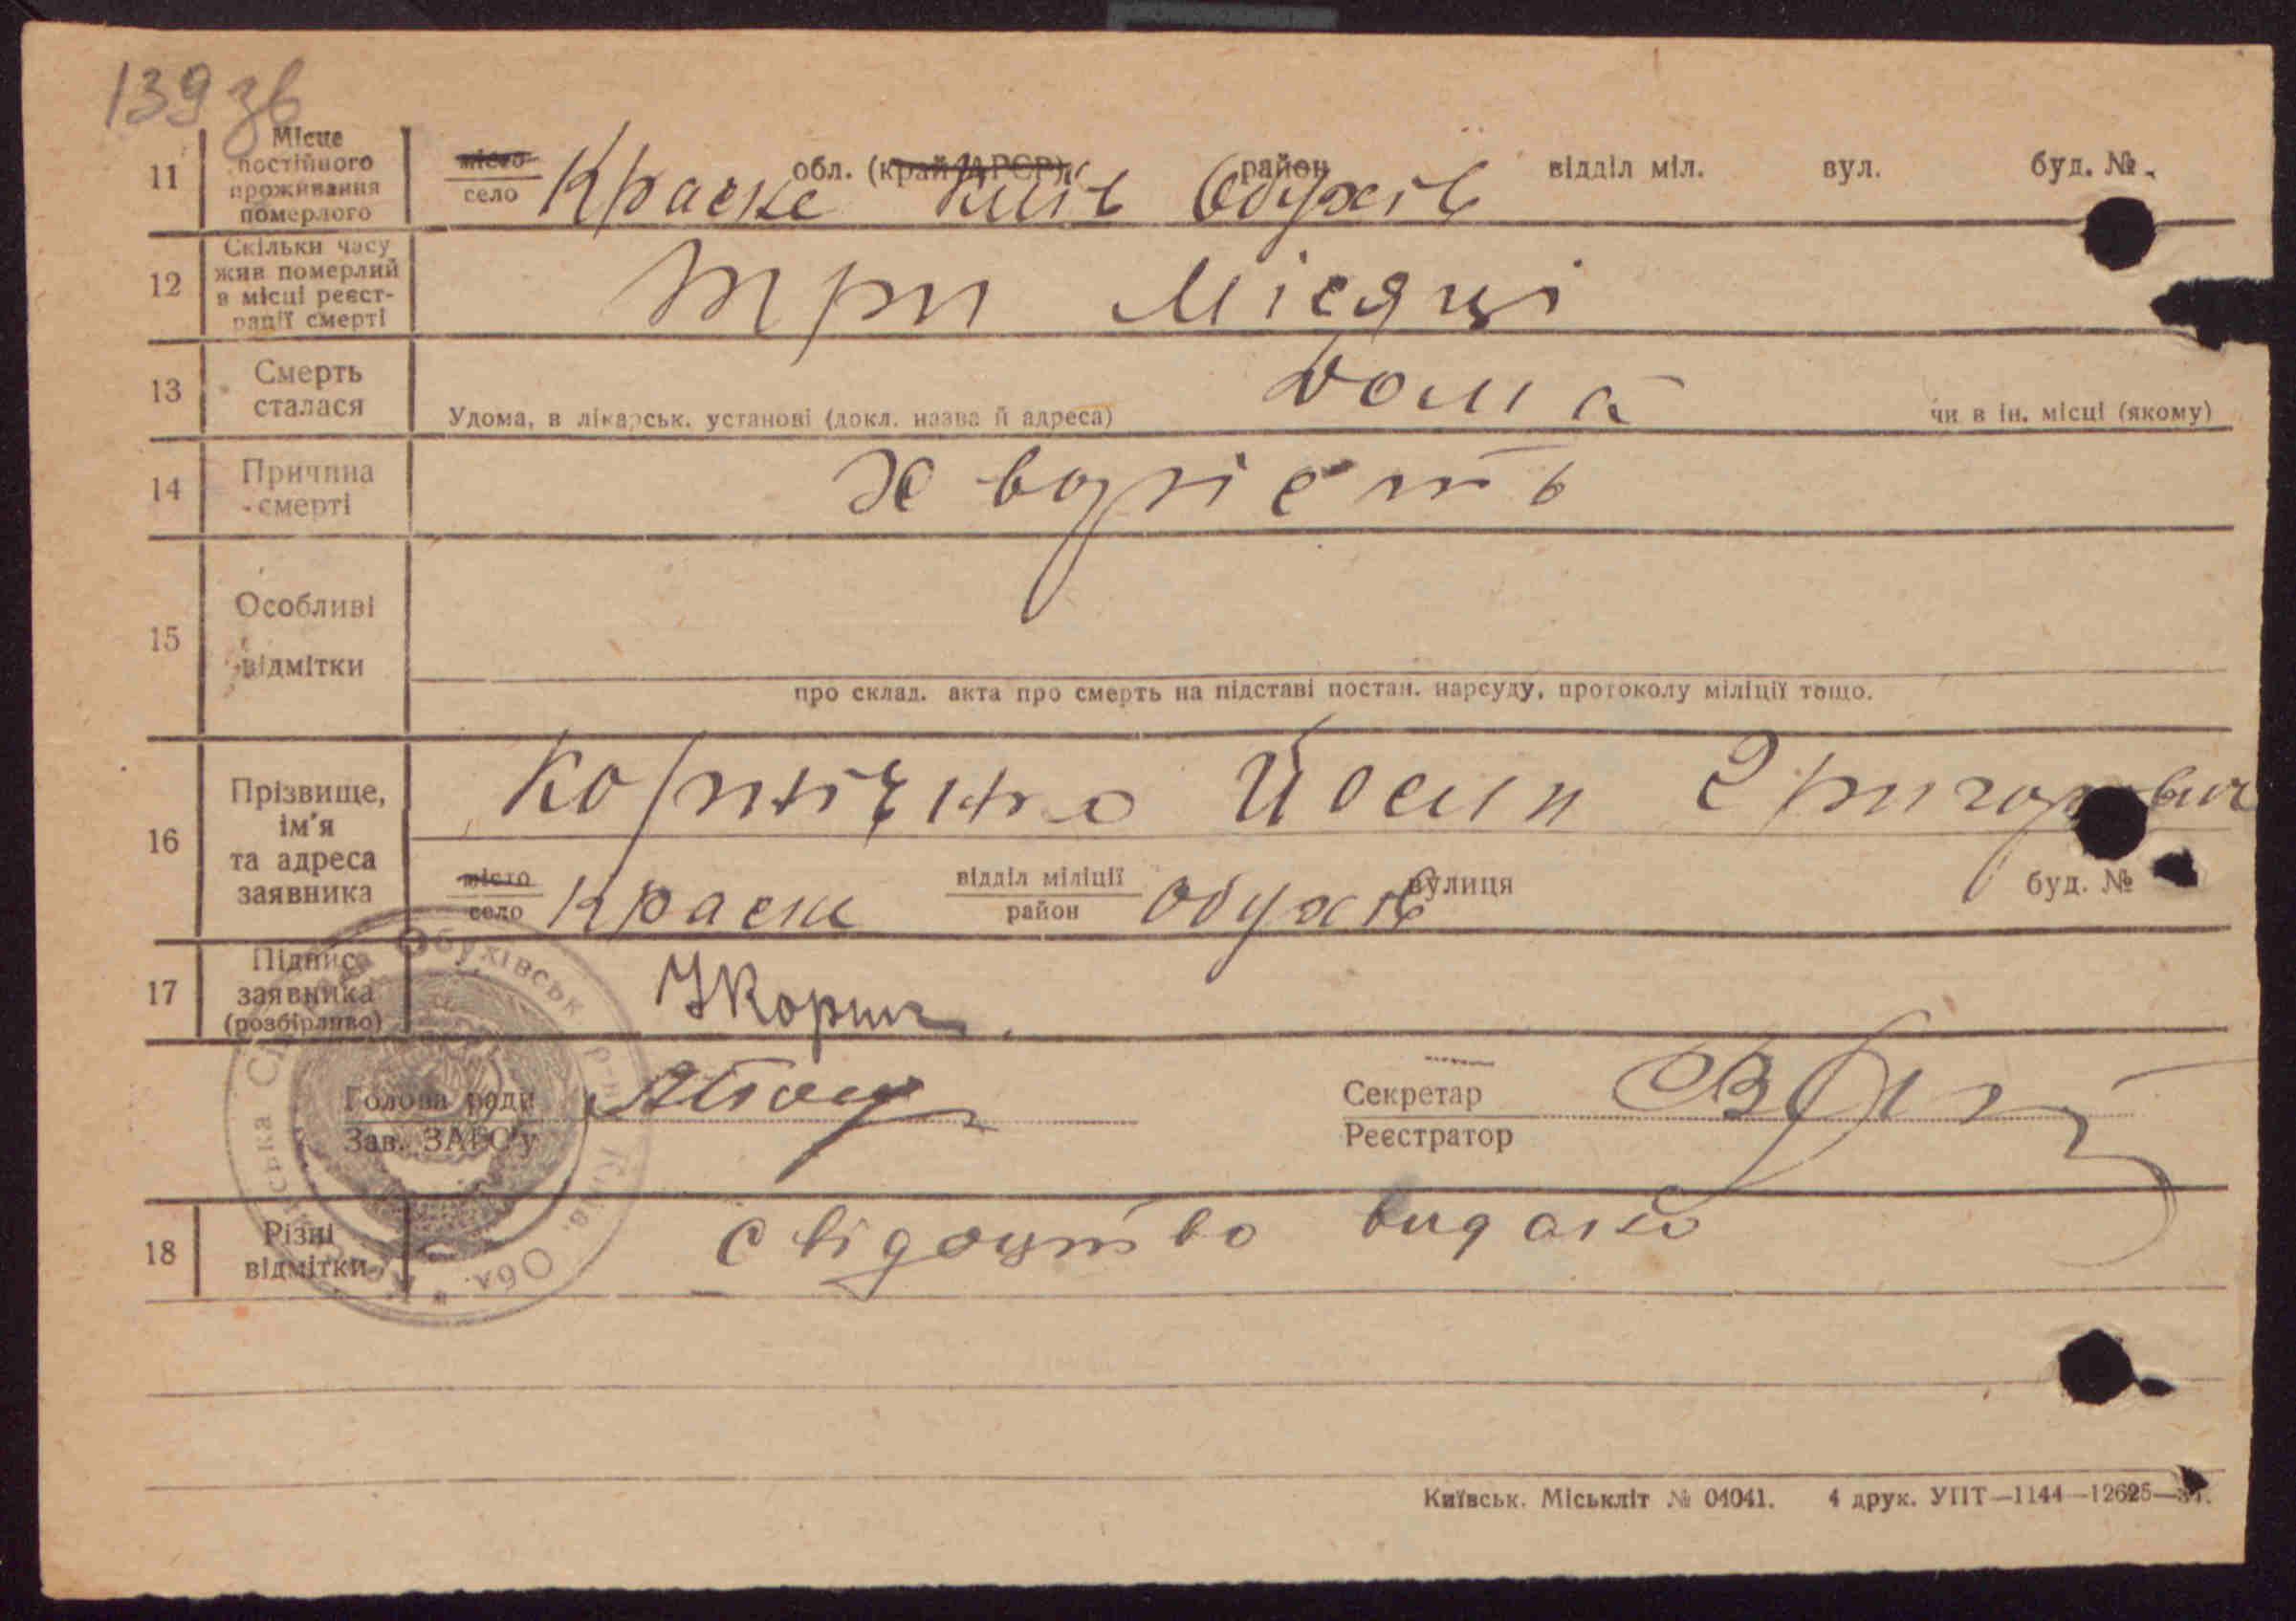 139 зв
11
Місце
постійного
проживання
померлого
місто
село
Краске
обл. (край АРСР)
Київ
район
Обухів
відділ міл.
вул.
буд. №
12
Скільки часу
жив померлий
в місці реєст-
рації смерті
три місяці
13
Смерть
сталася
Удома, в лікарськ. установі (докл. назва й адреса)
Дома
чи в ін. місці (якому)
14
Причина
смерті
хворість
15
Особливі
відмітки
про склад. акта про смерть на підставі постан. нарсуду, протоколу міліції тощо.
16
Прізвище,
ім'я
та адреса
заявника
Йосип Григорович
місто
село
Краск
відділ міліції
район
Обухів
вулиця
буд. №
17
Підпис
заявника
(розбірливо)
Голова ради
Зав. ЗАГС'у
Секретар
Реєстратор
18
Різні
відмітки
свідоцтво видано
Обухівськ р-н Київ. Обл.
Київськ. Міськліт № 04041. 4 друк. УПТ—1144—12625—